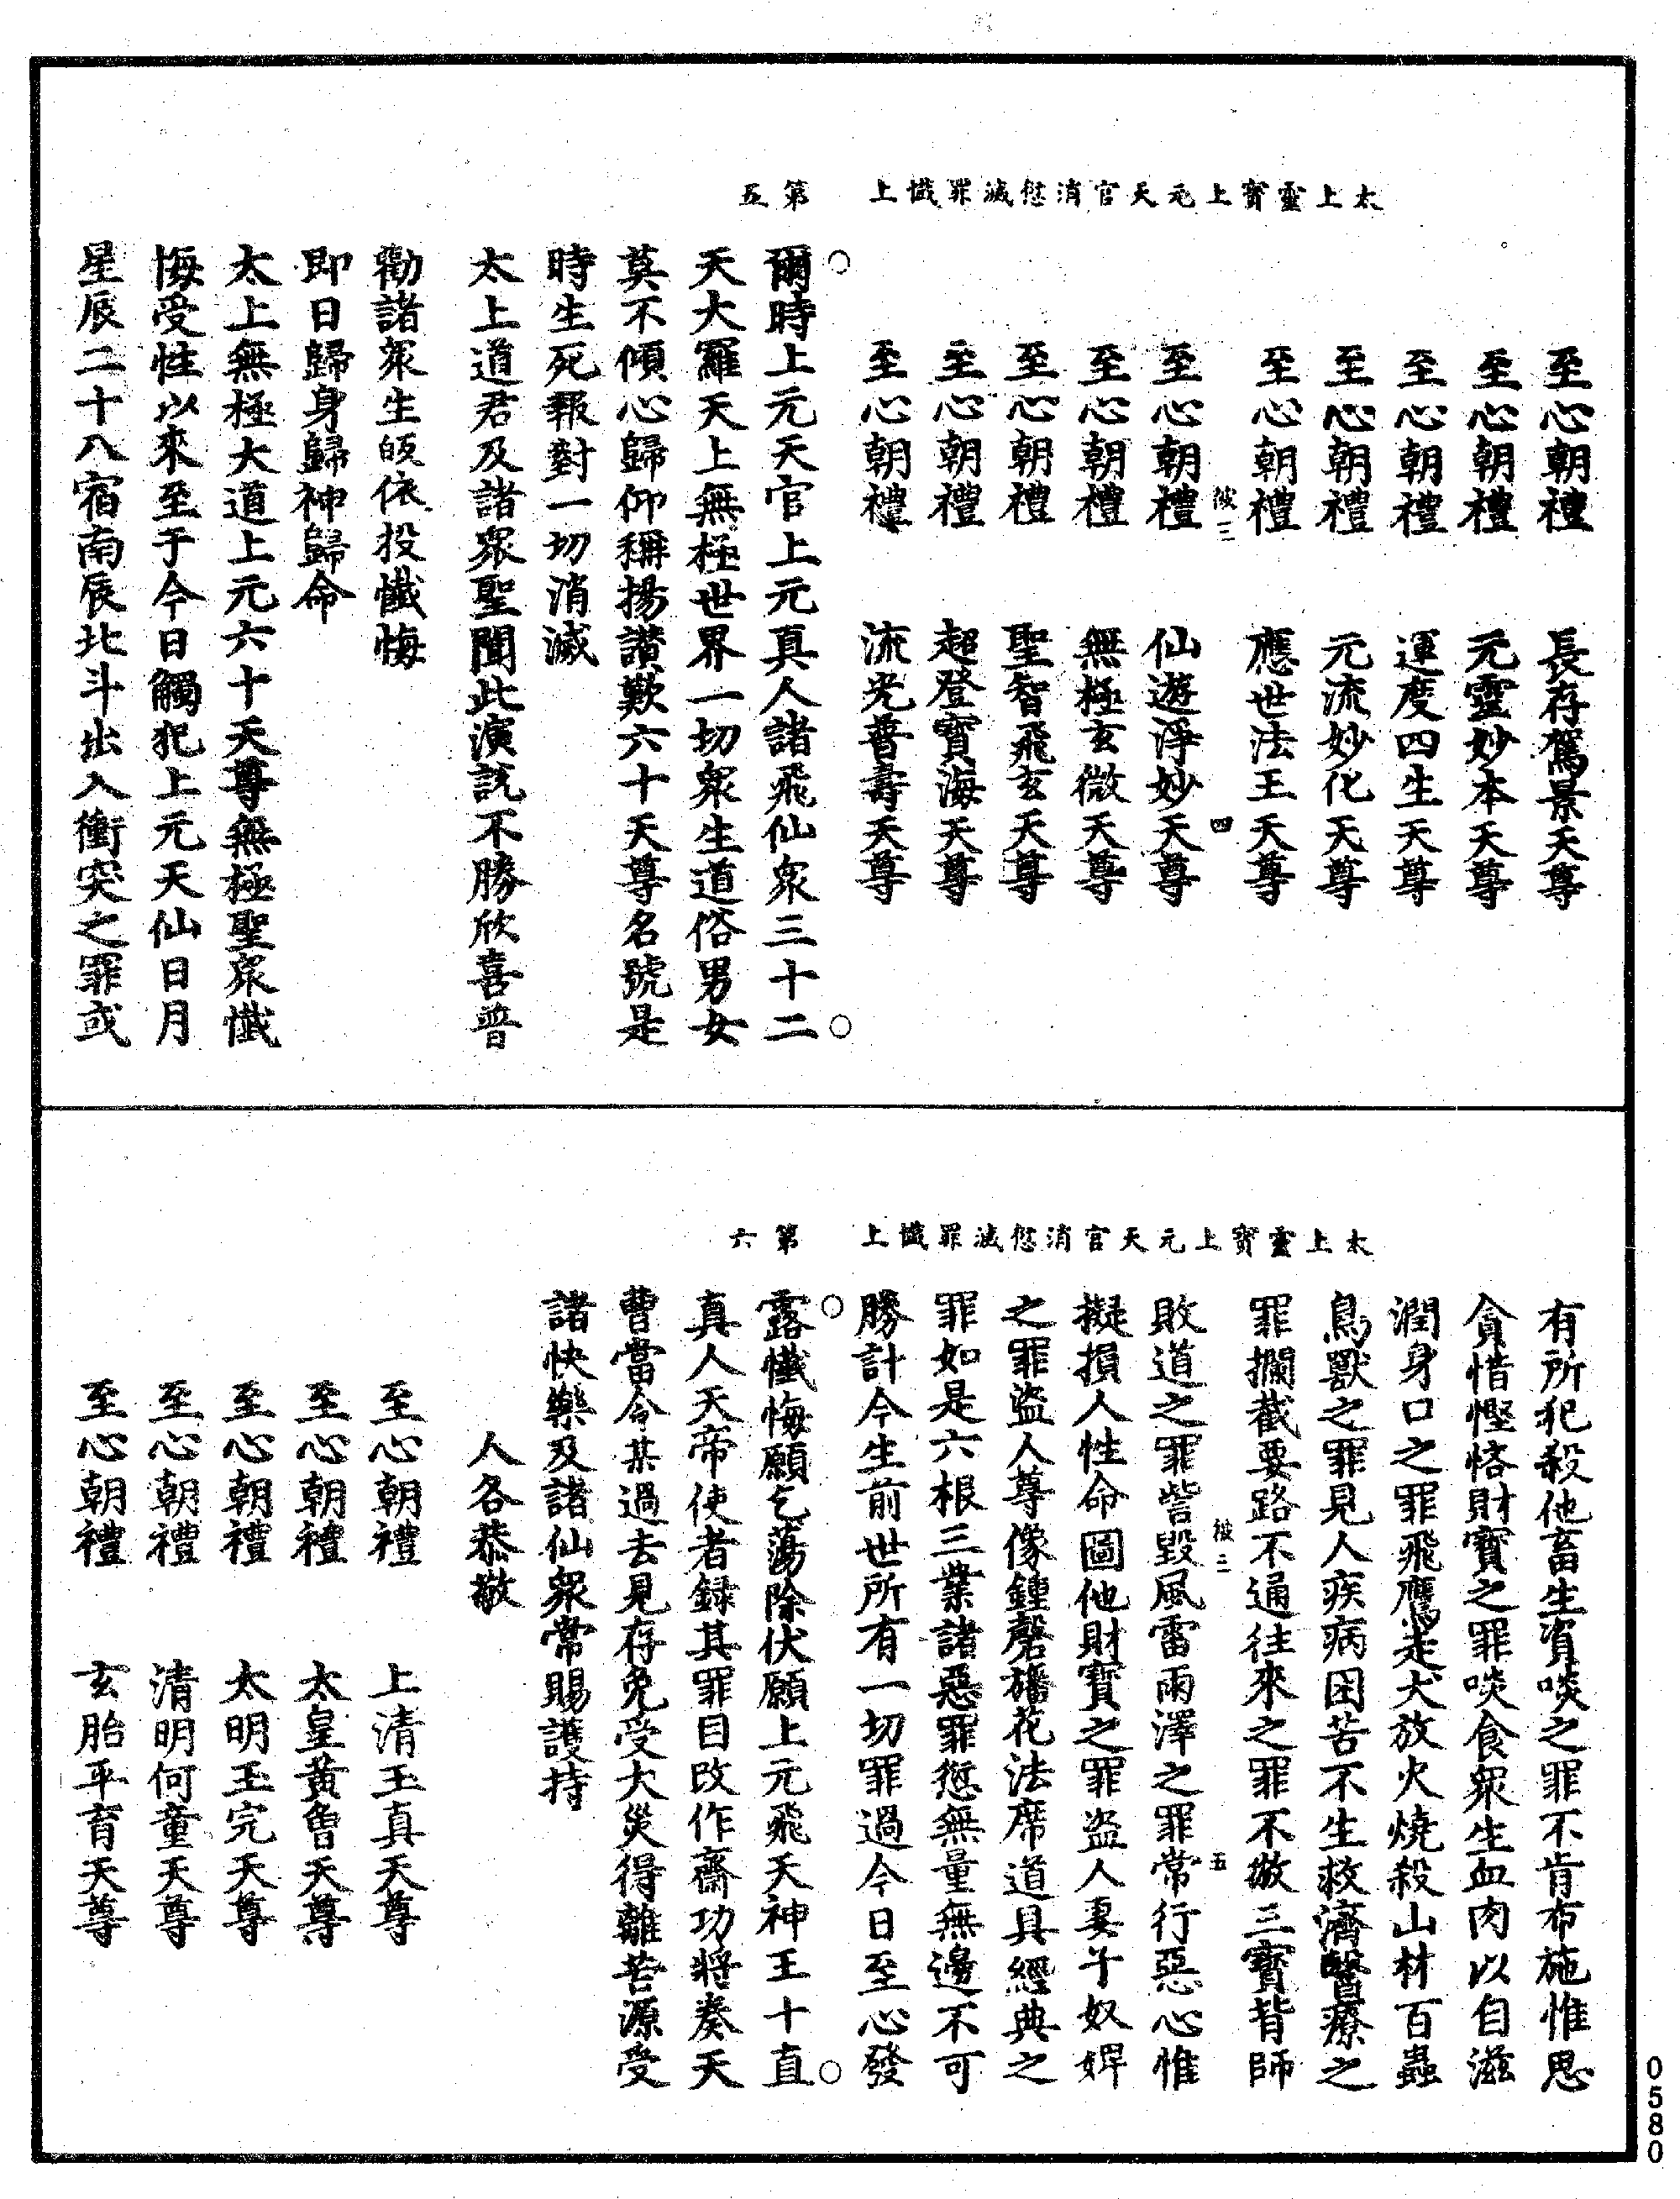 太上靈寶上元天官消愆滅罪懺上 第五
至心朝禮 長存駕景天尊
至心朝禮 元靈妙本天尊
至心朝禮 運度四生天尊
至心朝禮 元流妙化天尊
至心朝禮 應世法王天尊
四
至心朝禮 仙遊淨妙天尊
至心朝禮 無極玄微天尊
至心朝禮 聖智飛玄天尊
至心朝禮 超登寶海天尊
至心朝禮 流光普壽天尊
爾時上元天官上元真人諸飛仙眾三十二
天大羅天上無極世界一切眾生道俗男女
莫不傾心歸仰稱揚讚歎六十天尊名號是
時生死報對一切消滅
太上道君及諸眾聖聞此演說不勝欣喜普
勸諸眾生皈依投懺悔
即日歸身歸神歸命
太上無極大道上元六十天尊無極聖眾懺
悔受性以來至于今日觸犯上元天仙日月
星辰二十八宿南辰北斗出入衝突之罪或
太上靈寶上元天官消愆滅罪懺上 第六
有所犯殺他畜生資啖之罪不肯布施惟思
貪惜慳悋財寶之罪啖食眾生血肉以自滋
潤身口之罪飛鷹走犬放火燒殺山材百蟲
鳥獸之罪見人疾病困苦不生救濟醫療之
罪攔截要路不通往來之罪不敬三寶背師
五
敗道之罪訾毀風雷雨澤之罪常行惡心惟
擬損人性命圖他財寶之罪盜人妻子奴婢
之罪盜人尊像鍾磬旛花法席道具經典之
罪如是六根三業諸惡罪愆無量無邊不可
勝計今生前世所有一切罪過今日至心發
露懺悔願乞蕩除伏願上元飛天神王十直
真人天帝使者録其罪目改作齋功將奏天
曹當令某過去見存免受大災得離苦源受
諸快樂及諸仙眾常賜護持
人各恭敬
至心朝禮 上清玉真天尊
至心朝禮 太皇黃曾天尊
至心朝禮 太明玉完天尊
至心朝禮 清明何童天尊
至心朝禮 玄胎平育天尊
0580